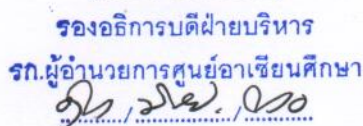 รองอธิการบดีฝ่ายบริหาร
รก.ผู้อำนวยการศูนย์อาเซียนศึกษา